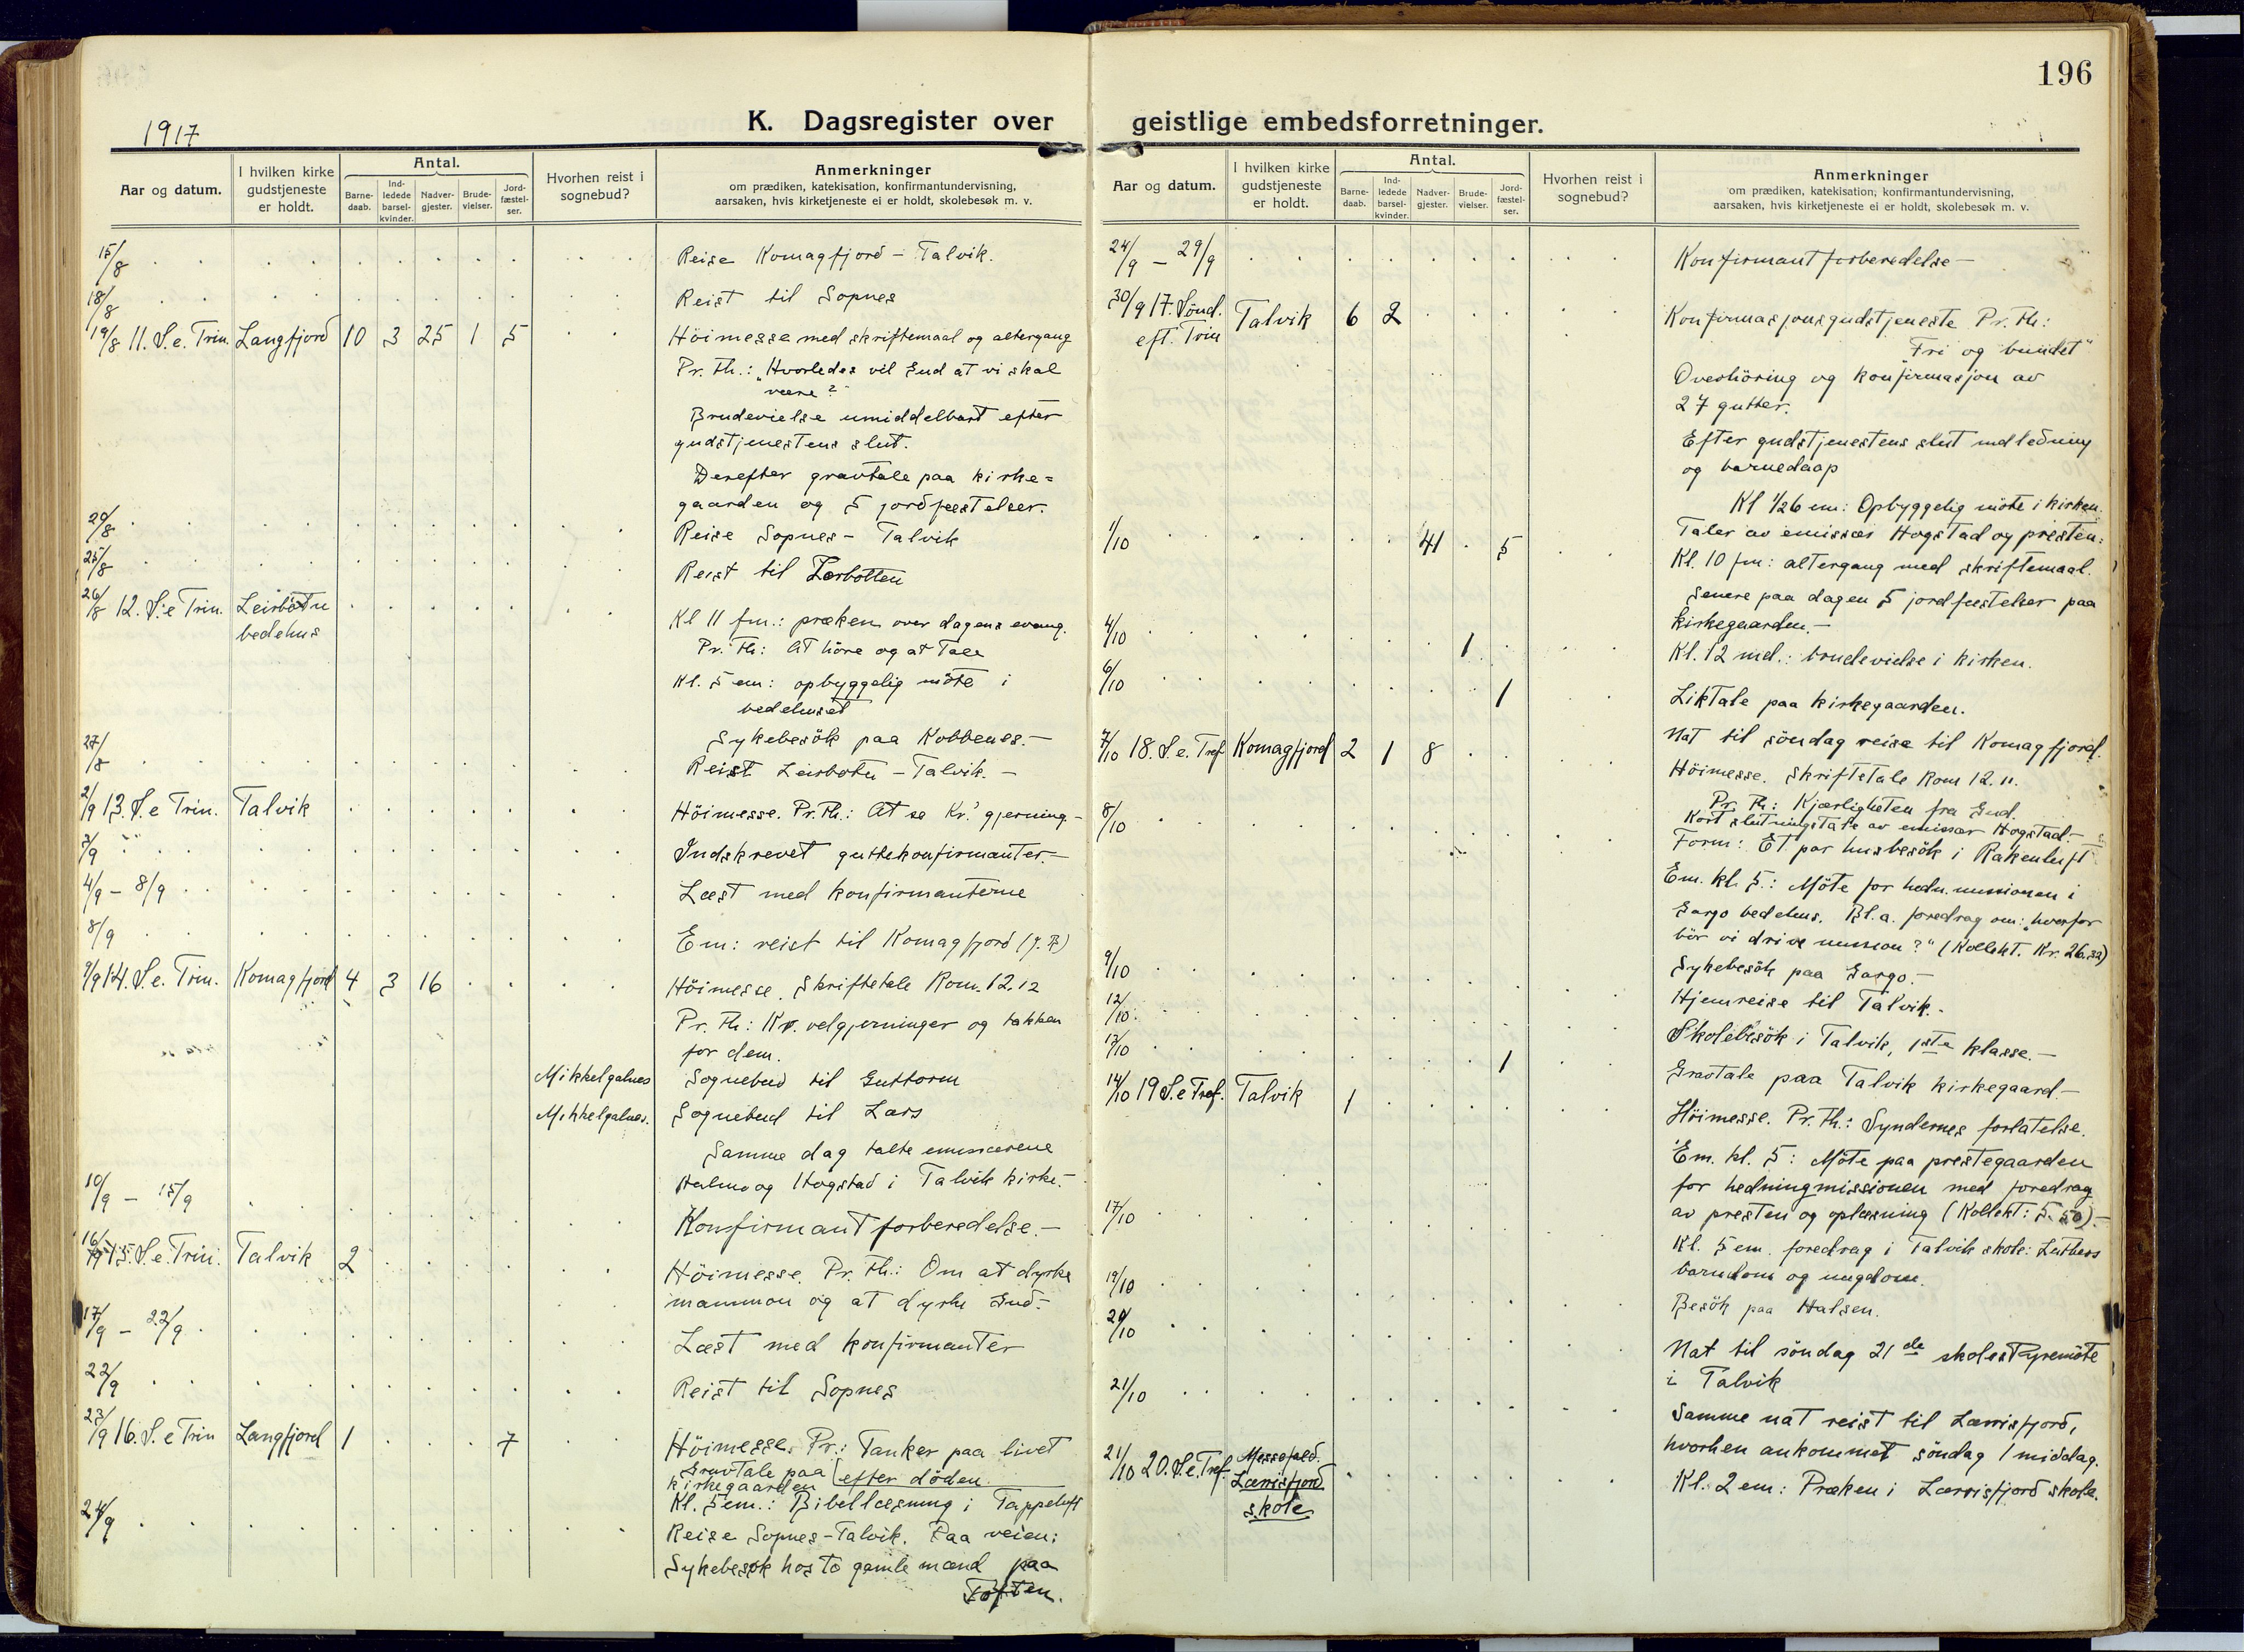 196
1917
K. Dagsregister over geistlige embedsforretninger.
Aar og datum.
I hvilken kirke gudstjeneste er holdt.
Antal.
Barne-daab.
Ind-ledede barsel-kvinder.
Nadver-gjester.
Brude-vielser.
Jord-fæstel-ser.
Hvorhen reist i sognebud?
Anmerkninger
om prædiken, katekisation, konfirmantundervisning,
aarsaken, hvis kirketjeneste ei er holdt, skolebesøk m. v.
15/8 Reise Komagfjord - Talvik.
18/8 Reist til Sopnes
19/8 11. S. e. Trin. Langfjord 10 3 25 1 5 Höimesse med skriftemaal og altergang
Pr. Th.: "Hvorledes vil Gud at vi skal
være?"
Brudevielse umiddelbart efter
gudstjenestens slut.
Derefter gravtale paa kirke=
gaarden og 5 jordfæstelser.
20/8 Reise Sopnes - Talvik
25/8 Reist til Lerbotten
26/8 12. S. e Trin. Leirbotn
bedehus
Kl 11 fm.: præken over dagens evang.
Pr. Th: At höre og at tale
Kl. 5 em: opbyggelig möte i
bedehuset
Sykebesök paa Kobbenes.-
27/8 Reist Leirbotn - Talvik. -
2/9 13. S. e Trin. Talvik Höimesse. Pr. Th.: At se Kr.' gjerning.-
3/9 Indskrevet guttekonfirmanter.-
4/9 - 8/9 Læst med konfirmanterne
8/9 Em: reist til Komagfjord
9/9 14. S. e. Trin. Komagfjord 4 3 16 Höimesse. Skriftetale Rom. 12.12
Pr. Th: Kr. velgjerninger og takken
for dem.
Mikkelgalnes Sognebud til Guttorm
Mikkelgalnes. Sognebud til Lars
Samme dag talte emissærene
og Hogstad i Talvik kirke.-
10/9 - 15/9 Konfirmantforberedelse.-
16/9 15. S. e. Trin. Talvik 2 Höimesse. Pr. Th.: Om at dyrke
mammon og at dyrke Gud.-
17/9 - 22/9 Læst med konfirmanter
22/9 Reist til Sopnes
23/9 16. S. e Trin Langfjord 1 7 Höimesse. Pr.: Tanker paa livet
efter döden.
Gravtale paa
kirkegaarden
Kl. 5 em.: Bibellæsning i Tappeluft
24/9 Reise Sopnes-Talvik. Paa veien:
Sykebesök hos to gamle mænd paa
Toften.
Aar og datum.
I hvilken kirke gudstjeneste er holdt.
Antal.
Barne-daab.
Ind-ledede barsel-kvinder.
Nadver-gjester.
Brude-vielser.
Jord-fæstel-ser.
Hvorhen reist i sognebud?
Anmerkninger
om prædiken, katekisation, konfirmantundervisning,
aarsaken, hvis kirketjeneste ei er holdt, skolebesøk m. v.
24/9 - 29/9 Konfirmantforberedelse-
30/9 17. Sönd.
eft. Trin
Talvik 6 2 Konfirmasjonsgudstjeneste Pr. Th:
"Fri og bundet"
Overhöring og konfirmasjon av
27 gutter.
Efter gudstjenestens slut indledning
og barnedaap
Kl 1/2 6 em: Opbyggelig möte i kirken.
Taler av emissær Hogstad og presten.
1/10 41 5 Kl. 10 fm: altergang med skriftemaal.
Senere paa dagen 5 jordfæstelser paa
kirkegaarden.-
4/10 1 Kl. 12 md.: brudevielse i kirken.
6/10 1 Liktale paa kirkegaarden.
Nat til söndag reise til Komagfjord.
7/10 18. S. e. Tref. Komagfjord 2 1 8 Höimesse. Skriftetale Rom 12.11.
Pr. Th: Kjærligheten fra Gud.
Kort slutningstale av emissær Hogstad.-
8/10 Form: Et par husbesök i Rakenluft
Em. kl. 5.: Möte for hedn. missionen i
Gargo bedehus. Bl. a. foredrag om: "hvorfor
bör vi drive mission?" (Kollekt. Kr. 26.32)
Sykebesök paa Gargo.-
9/10 Hjemreise til Talvik.-
12/10 Skolebesök i Talvik, 1ste klasse.-
13/10 1 Gravtale paa Talvik kirkegaard-
14/10 19 S. e Tref. Talvik 1 Höimesse. Pr. Th.: Syndernes forlatelse.
Em. kl. 5: Möte paa prestegaarden
for hedningmissionen med foredrag
av presten og oplæsning (Kollekt: 5.50).-
17/10 Kl. 5 em. foredrag i Talvik skole: Luthers
barndom og ungdom.
19/10 Besök paa Halsen.
20/10 Nat til söndag 21de skolestyremöte
i Talvik
21/10 Samme nat reist til Lærrisfjord,
hvorhen ankommet söndag 1 middag.
21/10 20. S. e. Tref. Messefald.
Lærrisfjord
skole
Kl. 2 em: Præken i Lærrisfjord skole.